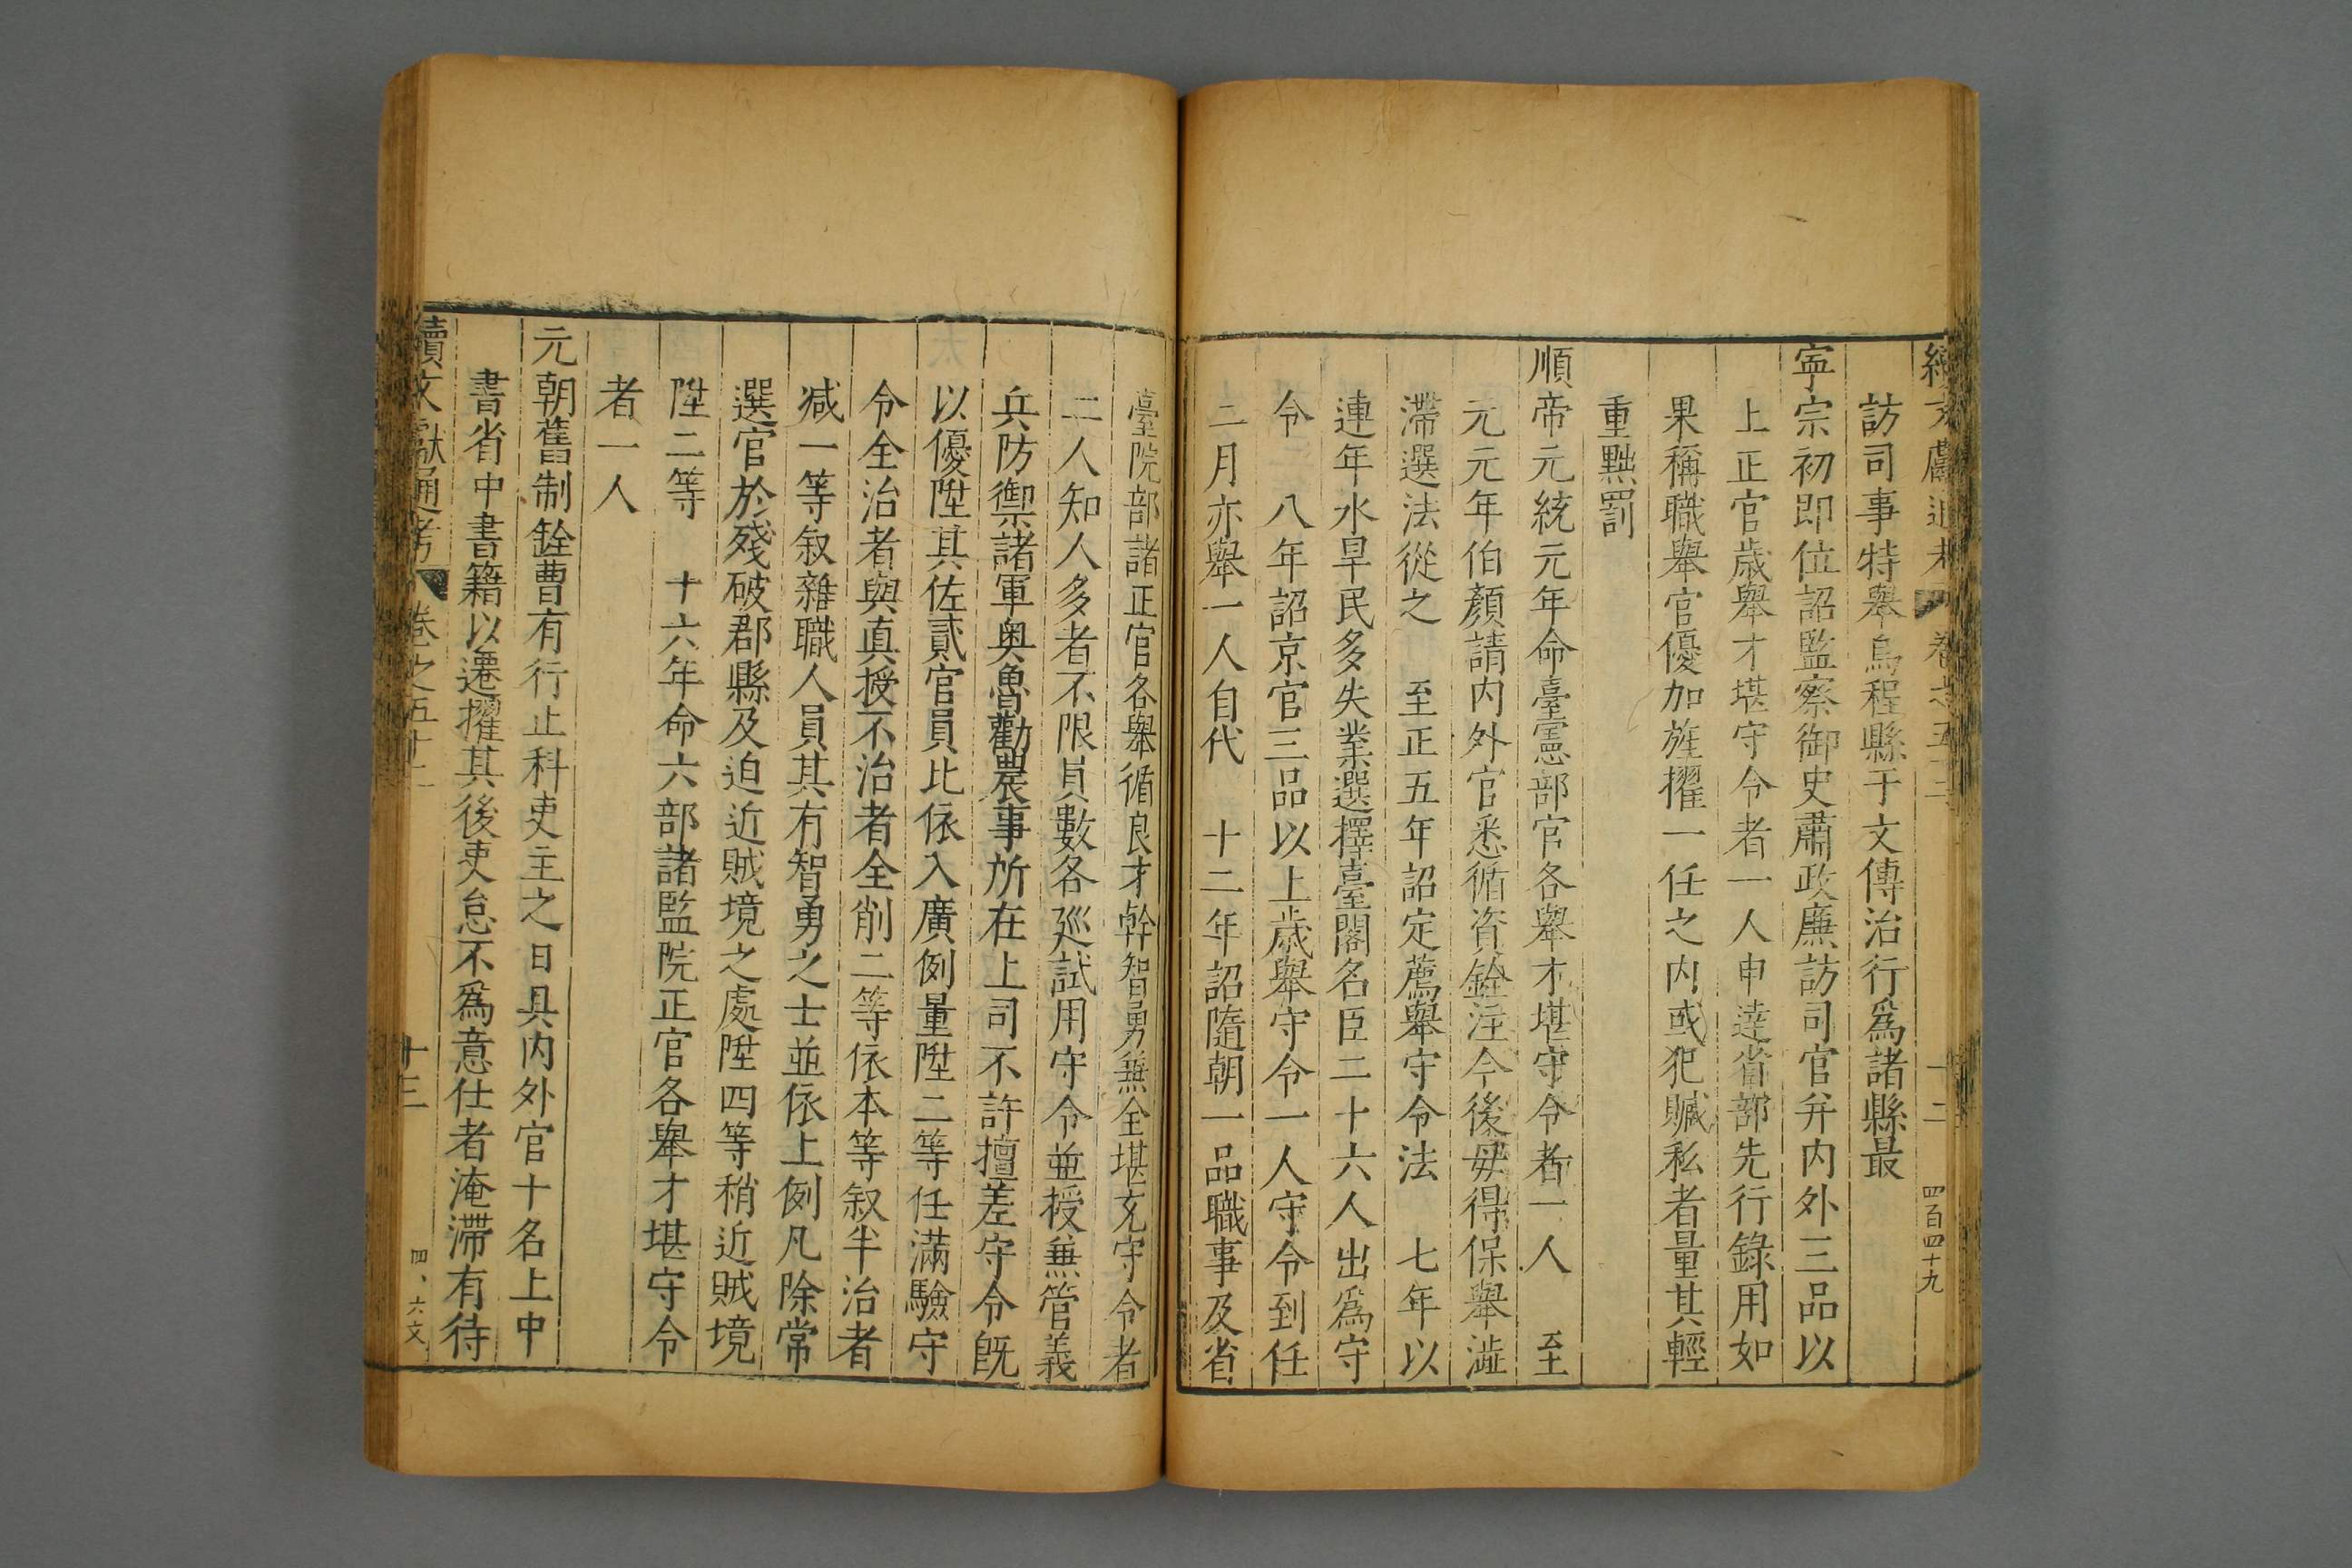 續文獻通考 卷之五十二 十二 四百四十九
訪司事特舉烏程縣于文傳治行爲諸縣最
寧宗初即位詔監察御史肅政廉訪司官并内外三品以
上正官歲舉才堪守令者一人申達省部先行錄用如
果稱職舉官優加旌擢一任之内或犯贓私者量其輕
重黜罰
順帝元統元年命臺憲部官各舉才堪守令者一人 至
元元年伯顏請内外官悉循資銓注今後毋得保舉澁
滯選法從之 至正五年詔定薦舉守令法 七年以
連年水旱民多失業選擇臺閣名臣二十六人出爲守
令 八年詔京官三品以上歲舉守令一人守令到任
二月亦舉一人自代 十二年詔隨朝一品職事及省
臺院部諸正官各舉循良才幹智勇兼全堪充守令者
二人知人多者不限員數各廵試用守令並授兼管義
兵防禦諸軍奥魯勸農事所在上司不許擅差守令旣
以優陞其佐貳官員比依入廣例量陞二等任滿驗守
令全治者與真授不治者全削二等依本等叙半治者
减一等叙雜職人員其有智勇之士並依上例凡除常
選官於殘破郡縣及迫近賊境之處陞四等稍近賊境
陞二等 十六年命六部諸監院正官各舉才堪守令
者一人
元朝舊制銓曹有行止科吏主之日具内外官十名上中
書省中書籍以遷擢其後吏怠不爲意仕者淹滯有待
續文獻通考 卷之五十二 十三 四、六文